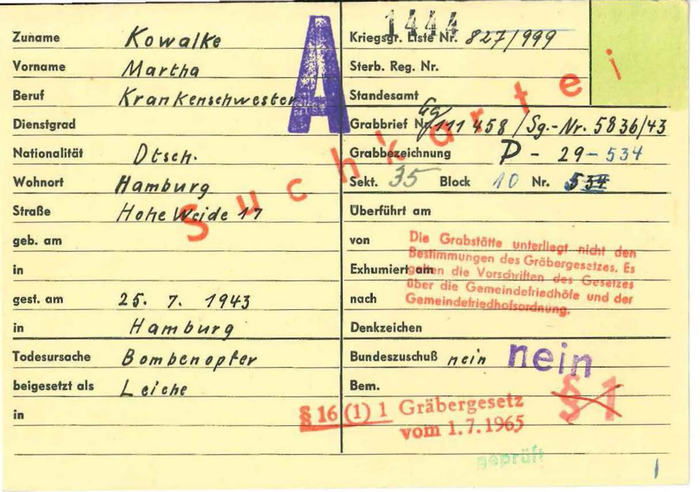 Zuname Kowalke
Vorname Martha
Beruf Krankenschwester
Dienstgrad
Nationalität Dtsch.
Wohnort Hamburg
Straße Hohe Weide 17
geb. am
in
gest. am 25. 7. 1943
in Hamburg
Todesursache Bombenopfer
beigesetzt als Leiche
in
A
Suchkartei
1444
Kriegsgr. Liste Nr. 827/999
Sterb. Reg. Nr.
Standesamt
Grabbrief Nr. Gg 111 458 / Sg.-Nr. 5836/43
Grabbezeichnung P - 29 - 534
Sekt. 35 Block 10 Nr. 534
Überführt am
von
Exhumiert am
nach
Die Grabstätte unterliegt nicht den
Bestimmungen des Gräbergesetzes. Es
gelten die Vorschriften des Gesetzes
über die Gemeindefriedhöfe und der
Gemeindefriedhofsordnung.
Denkzeichen
Bundeszuschuß nein nein
Bem.
§ 1
§ 16 (1) 1 Gräbergesetz
vom 1.7.1965
geprüft
1